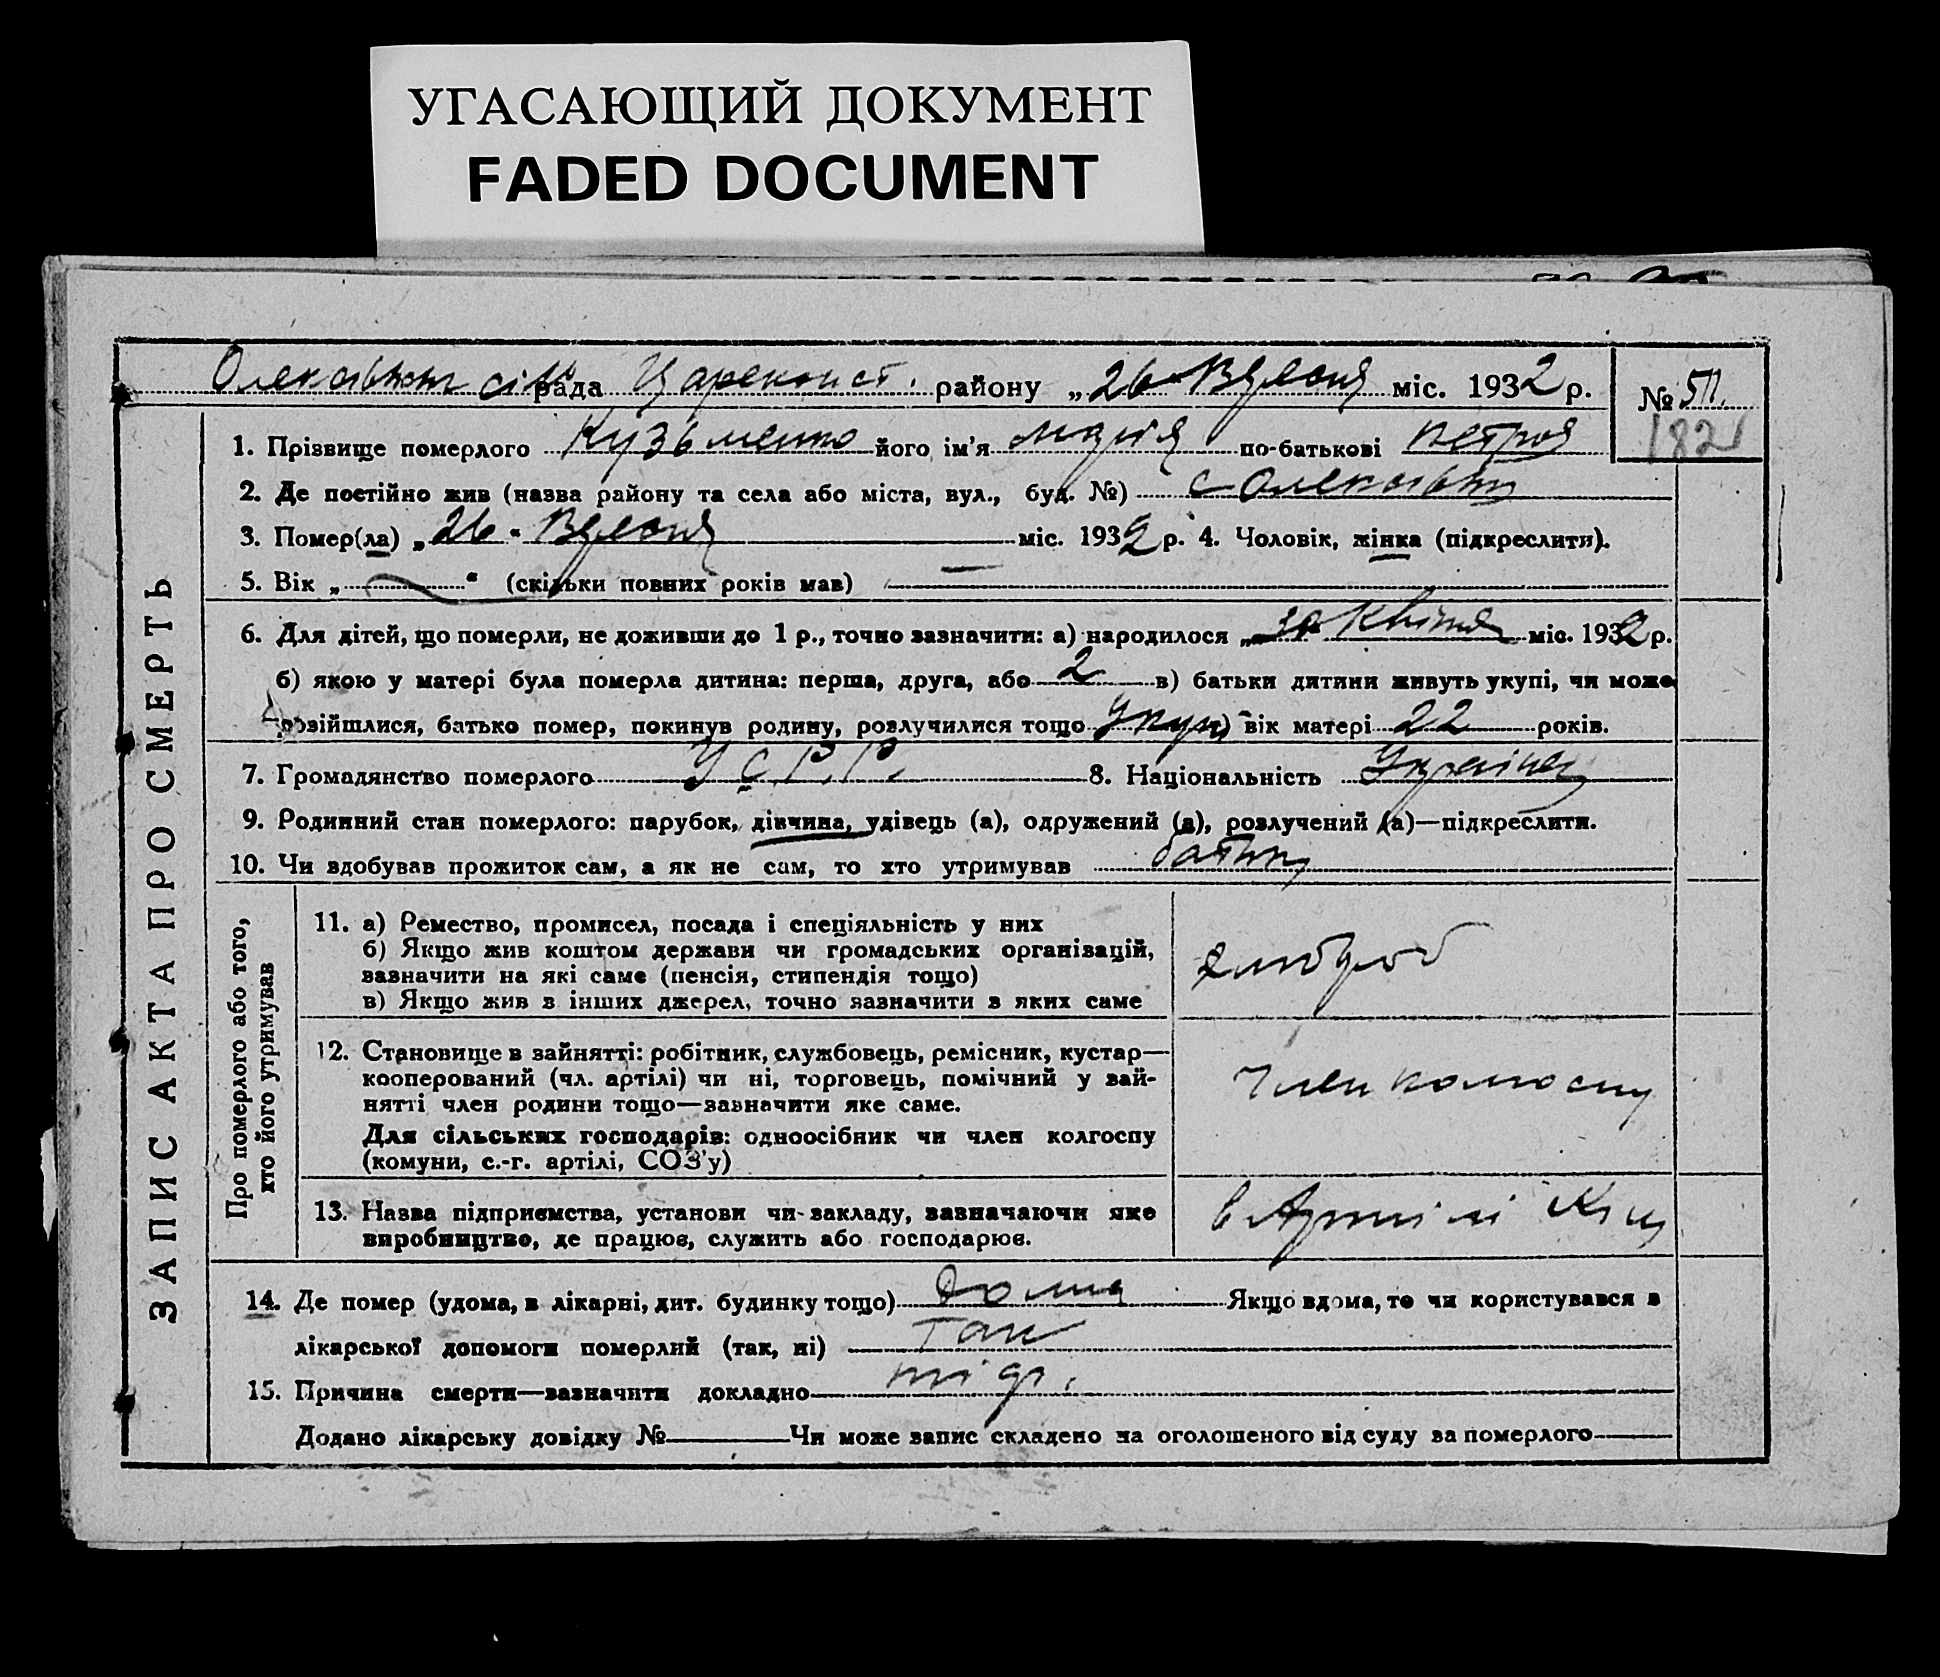 УГАСАЮЩИЙ ДОКУМЕНТ
FADED DOCUMENT
рада Царекост. району „26“ міс. 1932 р.
№ 511.
1821
1. Прізвище померлого Кузьменко його ім'я Марія по-батькові Петров
2. Де постійно жив (назва району та села або міста, вул., буд. №) с
3. Помер(ла) „26“ міс. 1932 р. 4. Чоловік, жінка (підкреслити).
5. Вік „ “ (скільки повних років мав) —
6. Для дітей, що померли, не доживши до 1 р., точно зазначити: а) народилося „ Квітня міс. 1932 р.
б) якою у матері була померла дитина: перша, друга, або 2 в) батьки дитини живуть укупі, чи може
розвійшлися, батько помер, покинув родину, розлучилися тощо укупі г) вік матері 22 років.
7. Громадянство померлого У.С.Р.Р. 8. Національність Українец
9. Родинний стан померлого: парубок, дівчина, удівець (а), одружений (а), розлучений (а)—підкреслити.
10. Чи вдобував прожиток сам, а як не сам, то хто утримував батьки
ЗАПИС АКТА ПРО СМЕРТЬ
Про померлого або того,
хто його утримував
11. а) Ремество, промисел, посада і спеціяльність у них
б) Якщо жив коштом держави чи громадських організацій,
зазначити на які саме (пенсія, стипендія тощо)
в) Якщо жив з інших джерел, точно зазначити з яких саме
хлібороб
12. Становище в зайнятті: робітник, службовець, ремісник, кустар—
кооперований (чл. артілі) чи ні, торговець, помічний у зай-
нятті член родини тощо—зазначити яке саме.
Для сільських господарів: одноосібник чи член колгоспу
(комуни, с.-г. артілі, СОЗ'у)
член колгоспу
13. Назва підприємства, установи чи закладу, зазначаючи яке
виробництво, де працює, служить або господарює.
в Артілі
14. Де помер (удома, в лікарні, дит. будинку тощо) дома Якщо вдома, то чи користувався з
лікарської допомоги померлий (так, ні) так
15. Причина смерти—зазначити докладно
Додано лікарську довідку № Чи може запис складено на оголошеного від суду за померлого